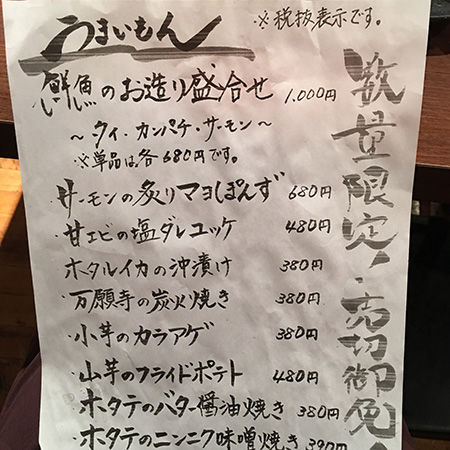 ※税抜表示です。
うまいもん
鮮魚のお造り盛合せ 1.000円
～タイ・カンパチ・サーモン～
※単品は各680円です。
・サーモンの炙りマヨぽんず 680円
・甘エビの塩ダレユッケ 480円
ホタルイカの沖漬け 380円
・万願寺の炭火焼き 380円
・小芋のカラアゲ 380円
・山芋のフライドポテト 480円
・ホタテのバター醤油焼き 380円
・ホタテのニンニク味噌焼き 390円
数量限定!売切御免!